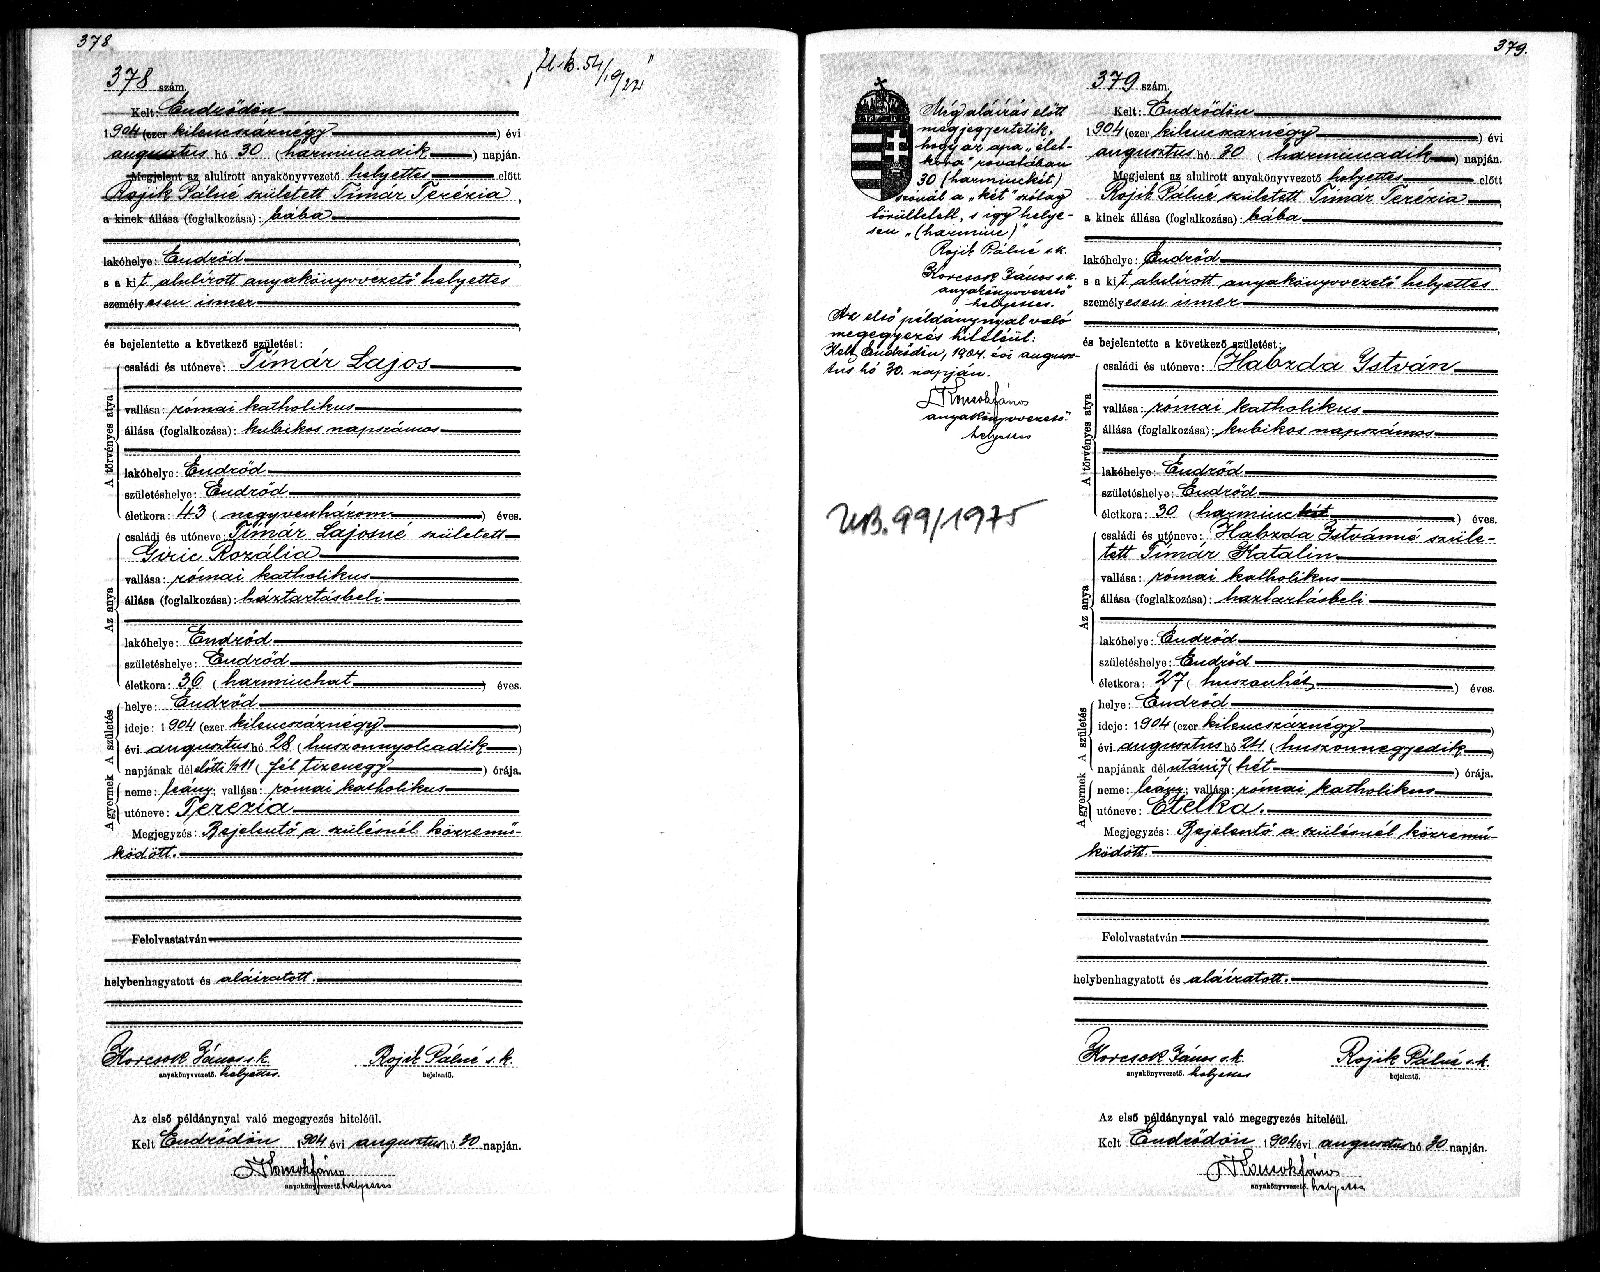 378
378 szám.
„U. b. 54/1922"
Kelt: Endrődön
1904 (ezer kilencszáznégy) évi
augusztus hó 30 (harmincadik) napján.
Megjelent az alulírott anyakönyvvezető helyettes előtt
Rojik Pálné született Tímár Terézia,
a kinek állása (foglalkozása): bába
lakóhelye: Endrőd
s a kit alulírott anyakönyvvezető helyettes
személyesen ismer
és bejelentette a következő születést:
A törvényes atya
családi és utóneve: Tímár Lajos
vallása: római katholikus
állása (foglalkozása): kubikos napszámos
lakóhelye: Endrőd
születéshelye: Endrőd
életkora: 43 (negyvenhárom) éves.
Az anya
családi és utóneve: Tímár Lajosné született
Giric Rozália
vallása: római katholikus
állása (foglalkozása): háztartásbeli
lakóhelye: Endrőd
születéshelye: Endrőd
életkora: 36 (harminchat) éves.
A születés
helye: Endrőd
ideje: 1904 (ezer kilencszáznégy)
évi augusztus hó 28 (huszonnyolcadik)
napjának délelőtti ½11 (fél tizenegy) órája.
A gyermek
neme: leány; vallása: római katholikus
utóneve: Terézia
Megjegyzés: Bejelentő a szülésnél közremű-
ködött.
Felolvastatván
helybenhagyatott és aláíratott.
Korcsok János s.k. Rojik Pálné s.k.
anyakönyvvezető. helyettes. bejelentő.
Az első példánynyal való megegyezés hiteléül.
Kelt Endrődön 1904 évi augusztus hó 30 napján.
Korcsok János
anyakönyvvezető. helyettes
379.
379 szám.
Még aláírás előtt
megjegyeztetik,
hogy az apa „élet-
kora" rovatában
30 (harminckét)
szónál a „két" szótag
töröltetett, s így helye-
sen „(harminc)"
Rojik Pálné s.k.
Korcsok János s.k.
anyakönyvvezető
helyettes.
Az első példánynyal való
megegyezés hiteléül:
Kelt Endrődön, 1904. évi augusz-
tus hó 30. napján.
Korcsok János
anyakönyvvezető
helyettes
UB. 99/1975
Kelt: Endrődön
1904 (ezer kilencszáznégy) évi
augusztus hó 30 (harmincadik) napján.
Megjelent az alulírott anyakönyvvezető helyettes előtt
Rojik Pálné született Tímár Terézia
a kinek állása (foglalkozása): bába
lakóhelye: Endrőd
s a kit alulírott anyakönyvvezető helyettes
személyesen ismer
és bejelentette a következő születést:
A törvényes atya
családi és utóneve: Habzda István
vallása: római katholikus
állása (foglalkozása): kubikos napszámos
lakóhelye: Endrőd
születéshelye: Endrőd
életkora: 30 (harminckét) éves.
Az anya
családi és utóneve: Habzda Istvánné szüle-
tett Tímár Katalin
vallása: római katholikus
állása (foglalkozása): haztartásbeli
lakóhelye: Endrőd
születéshelye: Endrőd
életkora: 27 (huszonhét) éves.
A születés
helye: Endrőd
ideje: 1904 (ezer kilencszáznégy)
évi augusztus hó 24 (huszonnegyedik)
napjának délutáni 7 (hét) órája.
A gyermek
neme: leány; vallása: római katholikus
utóneve: Etelka.
Megjegyzés: Bejelentő a szülésnél közremű-
ködött
Felolvastatván
helybenhagyatott és aláíratott.
Korcsok János s.k. Rojik Pálné s.k.
anyakönyvvezető. helyettes bejelentő.
Az első példánynyal való megegyezés hiteléül.
Kelt Endrődön 1904 évi augusztus hó 30 napján.
Korcsok János
anyakönyvvezető. helyettes